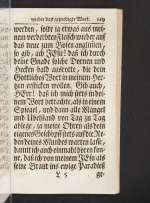 wieder das gepredigte Wort. 249
werden, solte ja etwas aus mei-
nem verderbten Fleisch wieder auf
das neue zum Bösen anglimmen,
so gib, ach JEsu! daß ich durch
deine Gnade solche Dornen und
Hecken bald ausrotte, die dein
Göttliches Wort in meinem Her-
zen ersticken wollen. Gib auch,
HErr! daß ich mich stets in dei-
nem Wort betrachte, als in einem
Spiegel, und dann alle Mängel
und Ubelstand von Tag zu Tag
ablege, ja meine Ohren als dein
eigenes Geschöpff stets auf die Re-
den deines Mundes warten lasse,
damit ich auch einmahl hören kön-
ne, daß ich von meinem JEsu als
seine Braut ins ewige Paradies
L 5 ge-